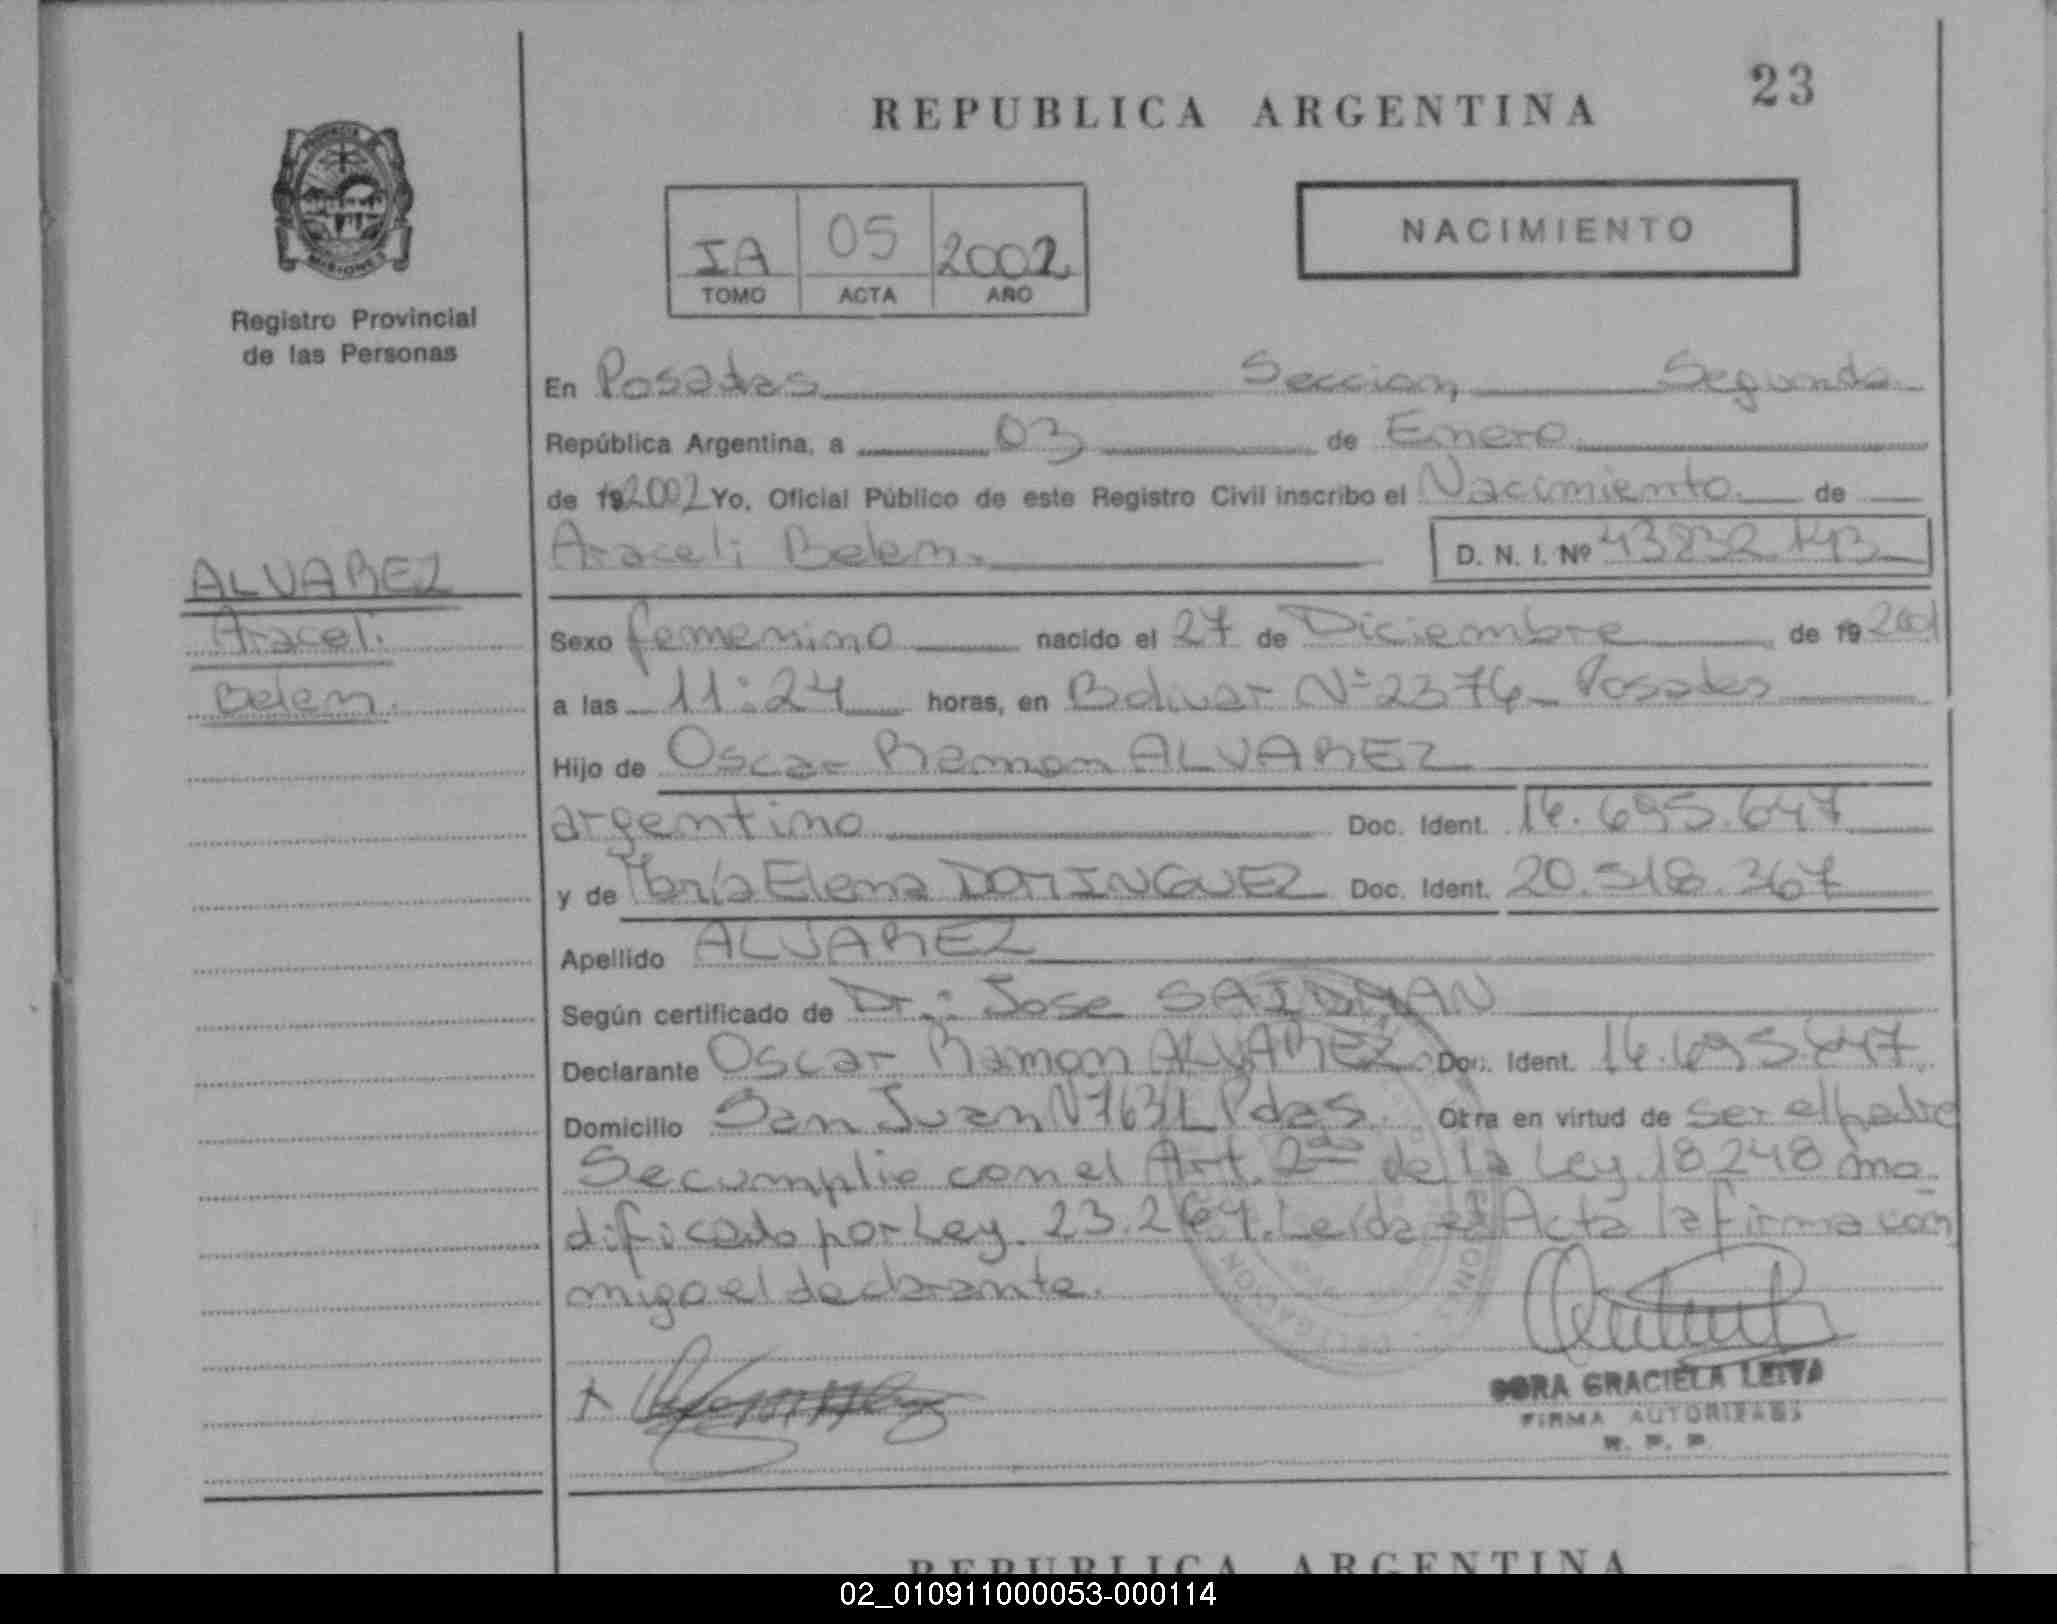 23
REPUBLICA ARGENTINA
PROVINCIA DE
MISIONES
Registro Provincial
de las Personas
IA 05 2002
TOMO ACTA AÑO
NACIMIENTO
En Posadas Seccion, Segunda
República Argentina, a 03 de Enero
de 192002 Yo, Oficial Público de este Registro Civil inscribo el Nacimiento de
Araceli Belen. D. N. I. Nº 43832 143
ALVAREZ
Araceli
Belen.
Sexo femenino nacido el 27 de Diciembre de 19 2001
a las 11:24 horas, en Bolivar Nº 2376 Posadas
Hijo de Oscar Ramon ALVAREZ
argentino Doc. Ident. 16.695.647
y de María Elena DOMINGUEZ Doc. Ident. 20.518.367
Apellido ALVAREZ
Según certificado de Dr.: Jose SAIDMAN
Declarante Oscar Ramon ALVAREZ Doc. Ident. 16.695.647
Domicilio San Juan Nº 631 Pdas. Otra en virtud de ser el padre
Se cumplio con el Art. 2do de la Ley 18248 mo-
dificado por Ley. 23.264. Leída el Acta la firma con
migo el declarante.
GRACIELA LEIVA
FIRMA AUTORIZADA
R. P. P.
REPUBLICA ARGENTINA
02_010911000053-000114